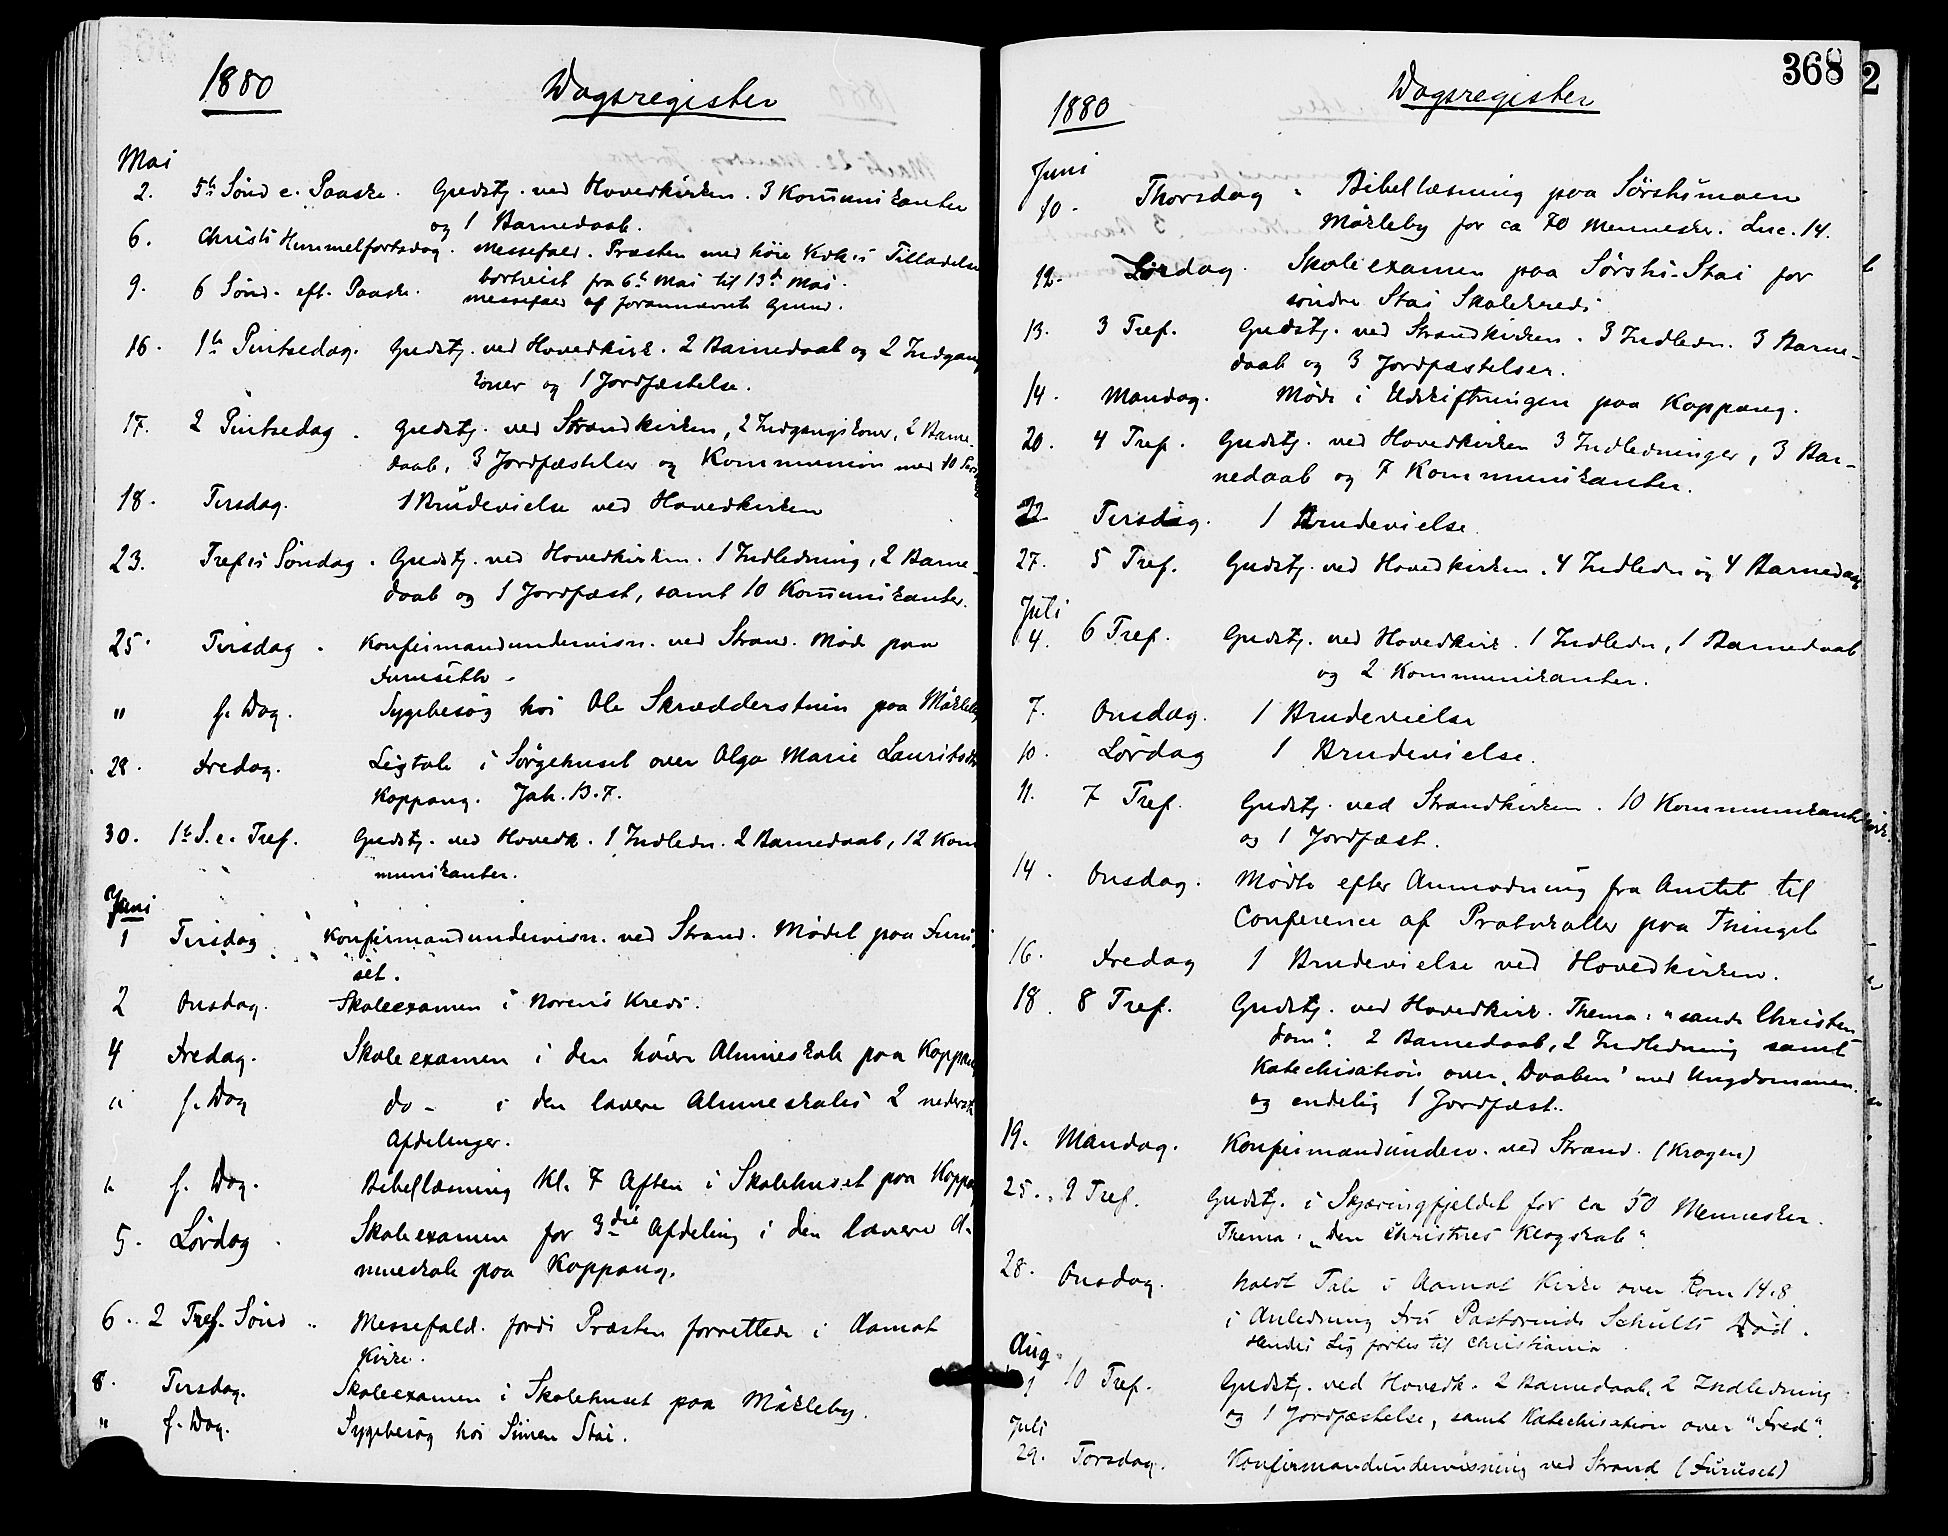 1880 Dagsregister
Mai
2. 5te Sønd e. Paaske. Gudstj. ved Hovedkirken. 3 Kom̄unikanter
og 1 Barnedaab.
6. Christi Himmelfartsdag. Messefald. Præsten med høie Kirk.s Tilladelse
bortreist fra 6te Mai til 13de Mai.
9. 6 Sønd. eft. Paaske. Messefald af forannævnte Grund.
16. 1ste Pintsedag. Gudstj. ved Hovedkirk. 2 Barnedaab og 2 Indgangs
koner og 1 Jordfæstelse.
17. 2 Pintsedag. Gudstj. ved Strandkirken, 2 Indgangskoner, 2 Barne-
daab, 3 Jordfæstelser og Kommunion med 10
18. Tirsdag. 1 Brudevielse ved Hovedkirken
23. Tref.s Søndag. Gudstj. ved Hovedkirken. 1 Indledning, 2 Barne-
daab og 1 Jordfæst, samt 10 Kom̄unikanter.
25. Tirsdag. Konfirmandundervisn. ved Strand. Møde paa
Furuseth.
" s. Dag. Sygebesøg hos Ole Skrædderstuen paa Mökleby
28. Fredag. Ligtale i Sørgehuset over Olga Marie
Koppang. Joh. 13.7.
30. 1ste S. e. Tref. Gudstj. ved Hovedk. 1 Indledn. 2 Barnedaab, 12 Kom
munikanter.
Juni
1 Tirsdag Konfirmandundervisn. ved Strand. Mødet paa Furu
set.
2 Onsdag. Skoleexamen i Norens Kreds.
4 Fredag. Skoleexamen i den høiere Almueskole paa Koppang
" s. Dag do - i den lavere Almueskoles 2 nederste
Afdelinger.
" s. Dag. Bibellæsning Kl. 7 Aften i Skolehuset paa Koppang
5. Lørdag. Skoleexamen for 3die Afdeling i den lavere Al-
mueskole paa Koppang.
6. 2 Tref. Sønd. Messefald. fordi Præsten forrettede i Aamot
Kirke.
8. Tirsdag. Skoleexamen i Skolehuset paa Mökleby.
" s. Dag. Sygebesøg hos Simen Stai.
368
2
1880 Dagsregister
Juni
10. Thorsdag. Bibellæsning paa Sørstumoen
Mökleby for ca 70 Mennesker. Luc. 14.
12. Lørdag. Skoleexamen paa Sørstu-Stai for
søndre Stai Skolekreds.
13. 3 Tref. Gudstj. ved Strandkirken. 3 Indledn. 3 Barne-
daab og 3 Jordfæstelser.
14. Mandag. Møde i Udskiftningen paa Koppang.
20. 4 Tref. Gudstj. ved Hovedkirken 3 Indledninger, 3 Bar-
nedaab og 7 Kommunikanter.
22 Tirsdag. 1 Brudevielse.
27. 5 Tref. Gudstj. ved Hovedkirken. 4 Indledn og 4 Barnedaab
Juli
4. 6 Tref. Gudstj. ved Hovedkirk. 1 Indledn, 1 Barnedaab
og 2 Kommunikanter.
7. Onsdag. 1 Brudevielse
10. Lørdag 1 Brudevielse.
11. 7 Tref. Gudstj. ved Strandkirken. 10 Kommunikanter
og 1 Jordfæst.
14. Onsdag. Mødte efter Anmodning fra Amtet til
Conference af Protokoller paa Thinget
16. Fredag 1 Brudevielse ved Hovedkirken.
18. 8 Tref. Gudstj. ved Hovedkirk. Thema: "sande Christen
dom". 2 Barnedaab, 2 Indledning samt
Katechisation over "Daaben" med Ungdommen.
og endelig 1 Jordfæst.
19. Mandag. Konfirmandunderv. ved Strand. (Krogen)
25. 9 Tref. Gudstj. i Skjæringfjeldet for ca 50 Mennesker.
Thema: "Den Christnes Klogskab".
28. Onsdag. holdt Tale i Aamot Kirke over Rom 14.8
i Anledning Fru Pastorinde Schults Død.
Hendes Lig førtes til Christiania.
Aug.
1 10 Tref. Gudstj. ved Hovedk. 2 Barnedaab, 2 Indledning
og 1 Jordfæstelse, samt Katechisation over "Fred".
Juli
29. Torsdag. Konfirmandundervisning ved Strand (Furuset)